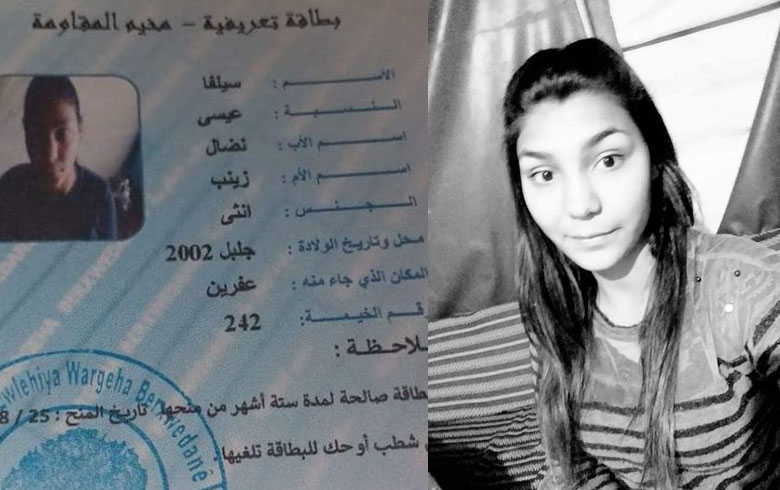 بطاقة تعريفية - مخيم المقاومة
الاســـم : سيلفا
النـسبـــة : عيسى
اســم الأب : نضال
اســم الأم : زينب
الـجنـــس : انثى
محل وتاريخ الولادة : جلبل 2002
المكان الذي جاء منه : عفرين
رقم الخيمـــة : 242
لاحظة :
طاقة صالحة لمدة ستة أشهر من منحها. تاريخ المنح : 25 / 8
شطب أو حك للبطاقة تلغيها.
wlehiya Wargeha Berxwedanê